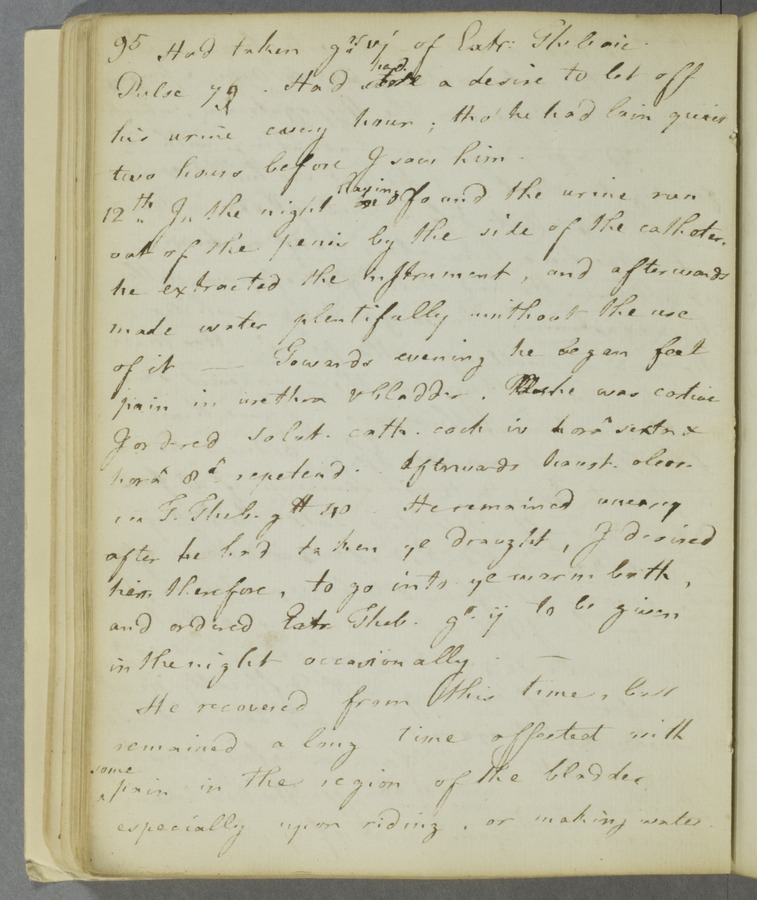 95 Had taken grs vj of Extr: Thebaic.
Pulse 79. Had had a desire to let off
his urine every hour; tho' he had lain quiet
two hours before I saw him.
12th In the night having found the urine run
out of the penis by the side of the catheter.
he extracted the instrument, and afterwards
made water plentifully without the use
of it — Towards evening he began feel
pain in urethra & bladder. he was costive
I ordered solut. cath. coch iv horâ sextâ &
horâ 8â repetend. Afterwards haust. oleos.
T. Theb. gtt He remained uneasy
after he had taken ye draught, I desired
him therefore, to go into ye warm bath,
and ordered Extr Theb. gr. ij to be given
in the night occasionally. —
He recovered from this time, but
remained a long time affected with
some
pain in the region of the bladder
especially upon riding, or making water.